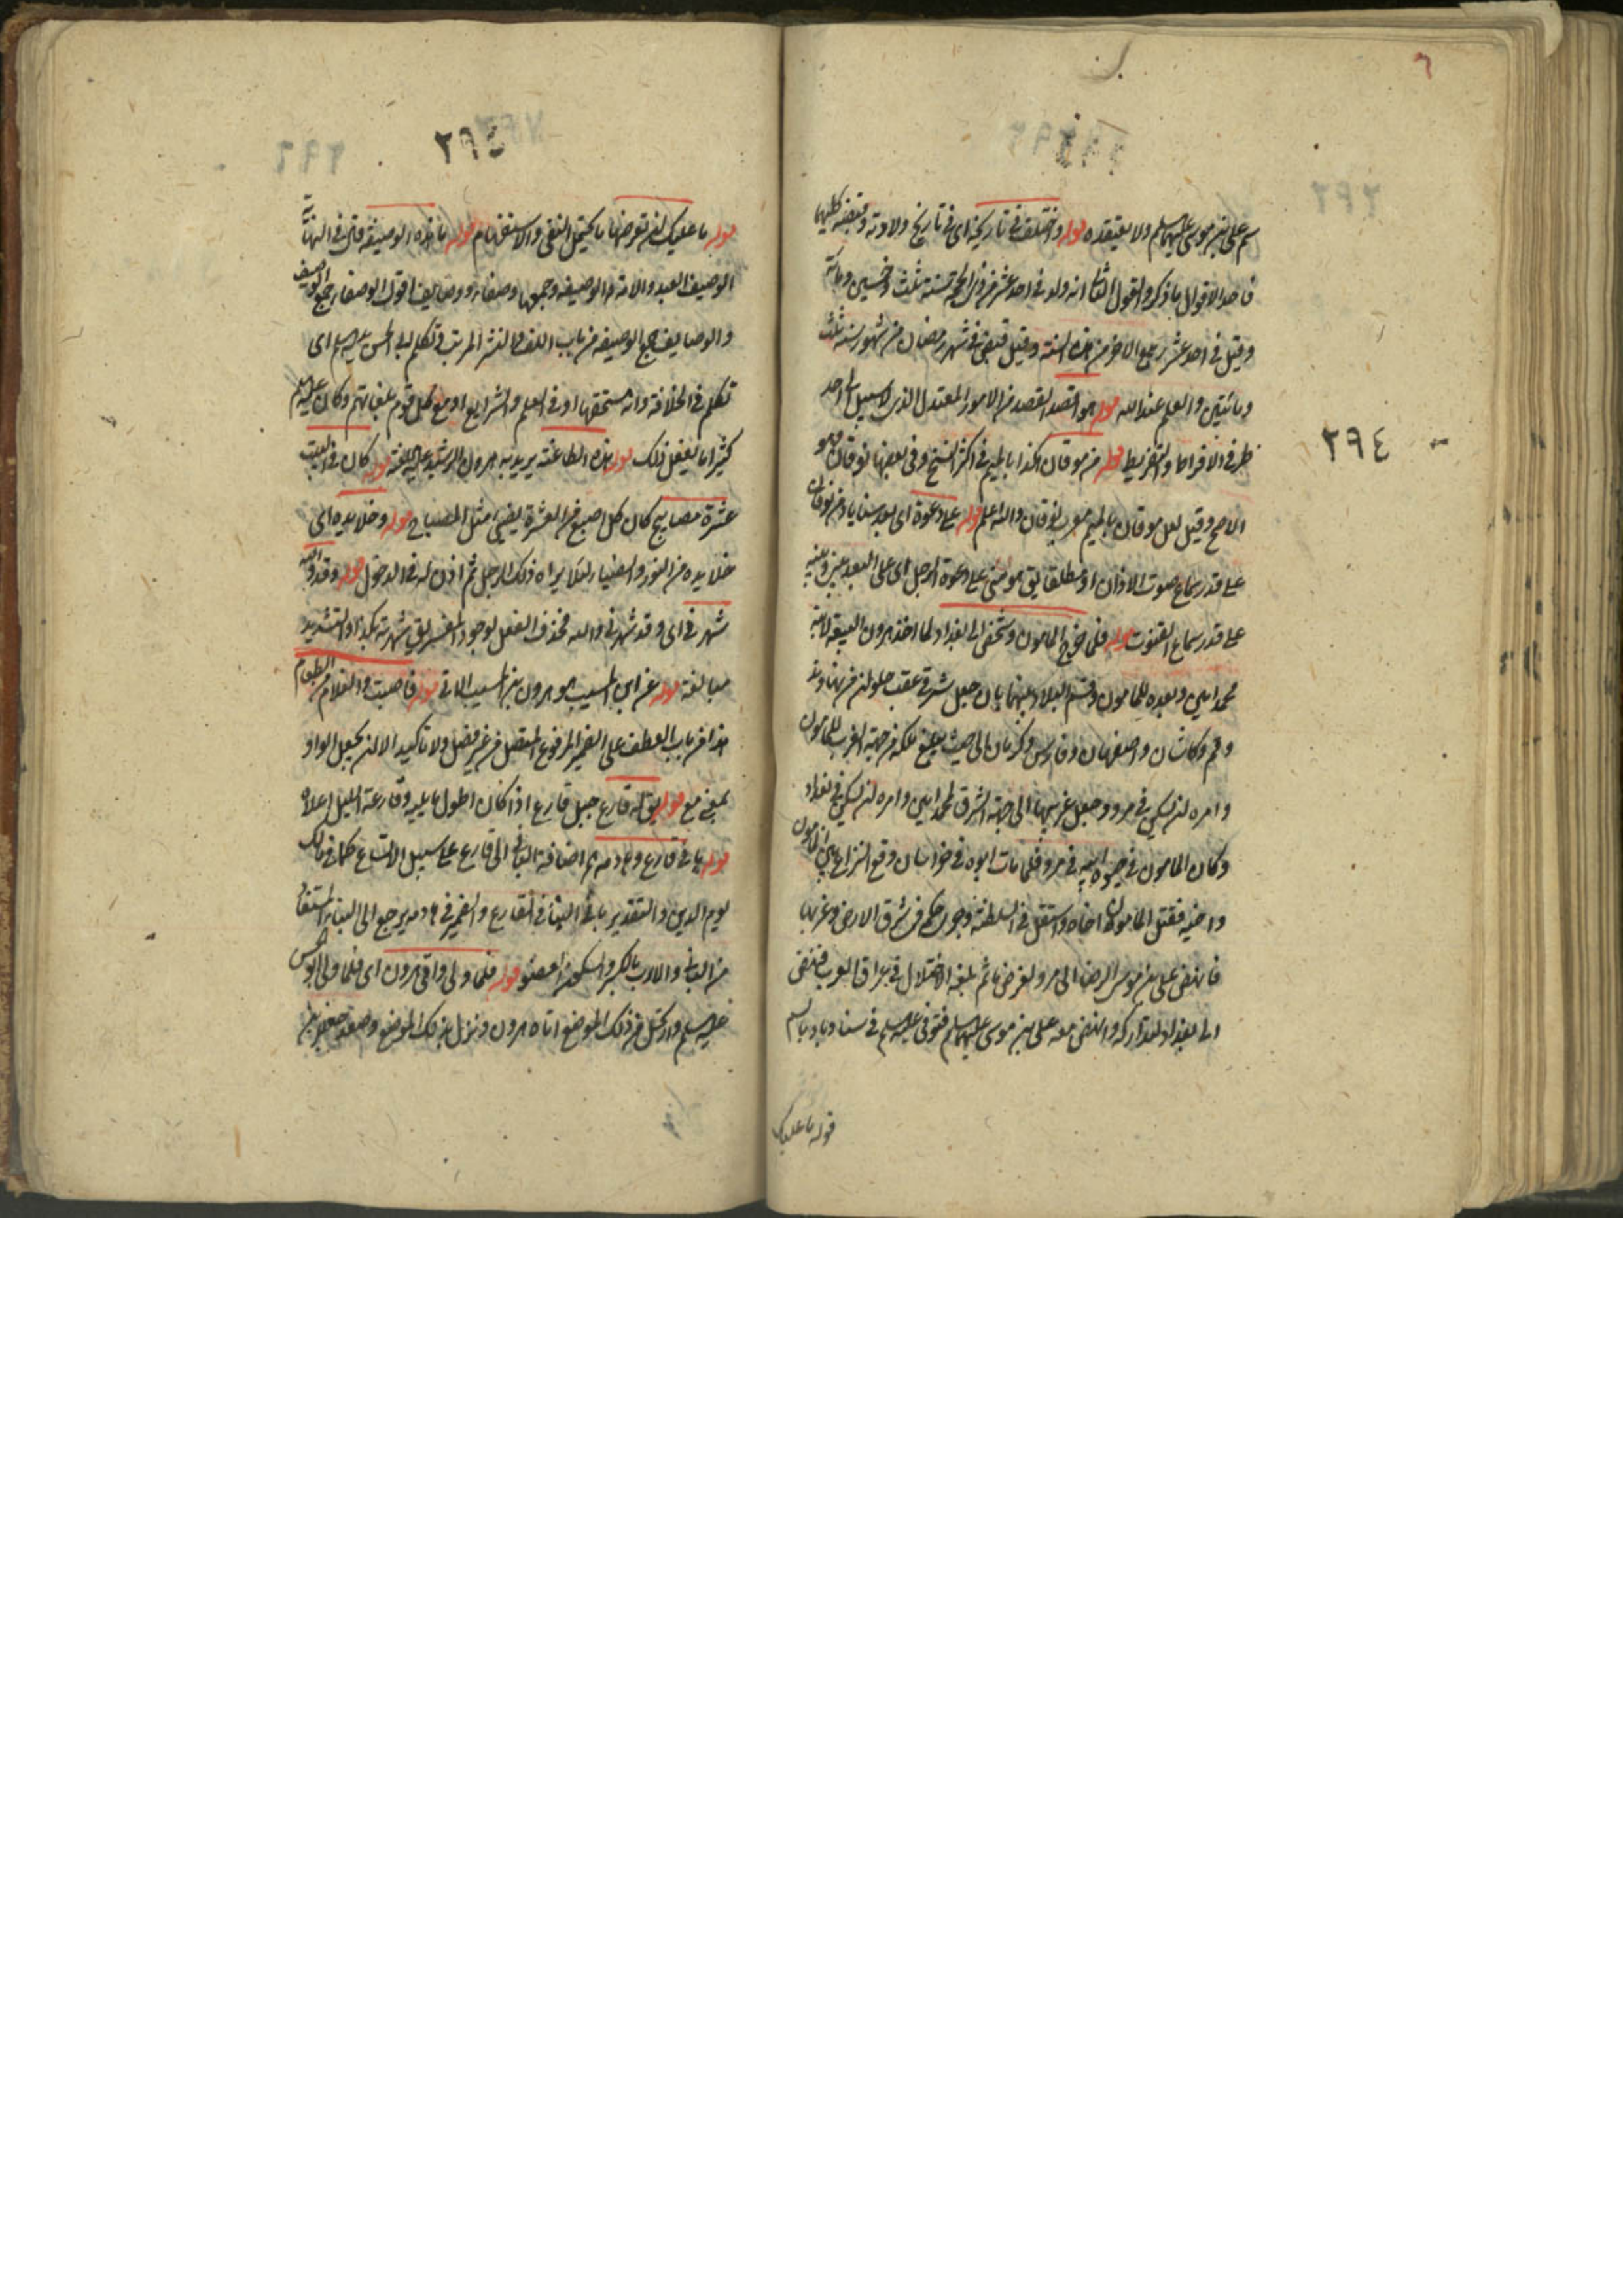 ٦
٢٩٤
سم على بن موسى عليهما سلم ولا يعتقده قوله واختلف في تاريخه اى في تاريخ ولادته وقبضه كليهما
فاحد الاقوال ما ذكر والقول الثانى انه ولد في احد عشر من ذى الحجة سنة ثلث وخمسين ومائة
وقيل في احد عشر ربيع الاخر من هذه السنة وقيل قبض في شهر رمضان من شهور سنة ثلث
وماتين والعلم عند الله قوله هو اقصد القصد من الامور المعتدل الذى لا سبيل الى احد
طرفى الافراط والتفريط قوله من موقان هكذا بالميم في اكثر النسخ وفى بعضها نوقان وهو
الاصح وقيل لعل موقان بالميم معرب نوقان والله اعلم قوله على دعوة اى بعد سناباد من نوقان
على قدر سماع صوت الاذان او مطلقا يق هو منى على دعوة الرجل اى على البعد بينى وبينه
على قدر سماع الصوت قوله فلما خرج المامون وشخص الى بغداد لما اخذ هرون البيعة لابنه
محمد امين وبعده للمامون وقسم البلاد بينهما بان جعل شرقى عقبة حلوان من نهاوند
وقم وكاشان واصفهان وفارس وكرمان الى حيث يبلغ ملكه من جهة الغرب للمامون
وامره ان يسكن في مرو وجعل غربيها الى جهة الشرق لمحمد امين وامره ان يسكن في بغداد
وكان المامون في حيوة ابيه في مرو فلما مات ابوه في خراسان وقع النزاع بين المامون
واخيه فقتل المامون اخاه واستقل في السلطنة وجرى حكمه في شرق الارض وغربها
فانهض على بن موسى الرضا الى مرو لغرض ما ثم بلغه الاختلال في عراق العرب فنهض
الى بغداد لتداركه وانهض معه على بن موسى عليهما سلم فتوفى عليه سلم في سناوباد بالسم
قوله ما عليك
قوله ما عليك ان تعرضها ما يحتمل النفى والاستفهام قوله ما هذه الوصيفة قال في النهاية
الوصيف العبد والامة الوصيفة وجمعها وصفاء ووصايف اقول الوصفاء جمع الوصيف
والوصايف جمع الوصيفة من باب اللف والنشر المرتب قوله تكلم ابو الحسن عليه سلم اى
تكلم في الخلافة وانه مستحقها او في العلم والشرايع او مع كل قوم بلغاتهم وكان عليه سلم
كثيرا ما يفعل ذلك قوله هذه الطاغية يريد به هرون الرشيد عليه اللعنة قوله كان في البيت
عشرة مصابيح كان كل اصبع من العشرة يضيئ مثل المصباح قوله وخلا يده اى
خلا يده من النور والضياء لئلا يراه ذلك الرجل ثم اذن له في الدخول قوله وقد والله
شهرنى اى وقد شهرنى والله فحذف الفعل لوجود المفسر يق شهرته بكذا والتشديد
مبالغة قوله عن ابى المسيب هو هرون بن المسيب الاتى قوله فاصبت والغلام من الطعام
هذا من باب العطف على الضمير المرفوع المتصل من غير فصل ولا تاكيد الا ان يجعل الواو
بمعنى مع قوله يق له قارع جبل قارع اذا كان اطول مما يليه وقارعة الجبل اعلاه
قوله بانى قارع وهادمه اضافة البانى الى قارع على سبيل الاتساع كما في مالك
يوم الدين والتقدير بانى البناء في القارع والضمير في هادمه يرجع الى البناء المستفاد
من البانى والارب بالكسر والسكون العضو قوله فلما ولى وافى هرون اى فلما ولى ابو الحسن
عليه سلم وارتحل من ذلك الموضع اتاه هرون ونزل بذلك الموضع وصعد جعفر بن